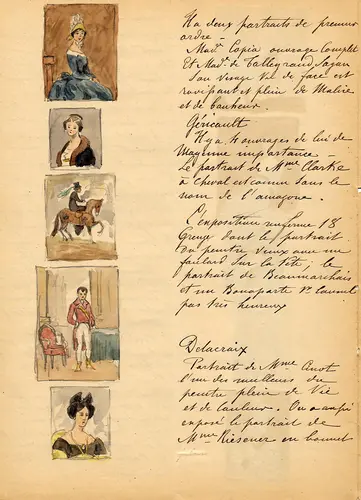 Il a deux portraits de premier
ordre –
Mad. Copia ouvrage complet
Et Mad. de Talleyrand Sagan
Son visage vu de face est
ravissant et plein de Malice
et de bonheur.
Géricault
Il y a 4 ouvrages de lui de
Moyenne importance –
Le portrait de Mme Clarke
à cheval est connu sous le
nom de l'amazone.
L'exposition renferme 18
Greuze dont le portrait
du peintre vieux avec un
foulard sur la tête ; le
portrait de Beaumarchais
et un Bonaparte 1er Consul
pas très heureux
Delacroix
Portrait de Mme
l'un des meilleurs du
peintre plein de Vie
et de Couleur. On a aussi
exposé le portrait de
Mme Riesener en bonnet